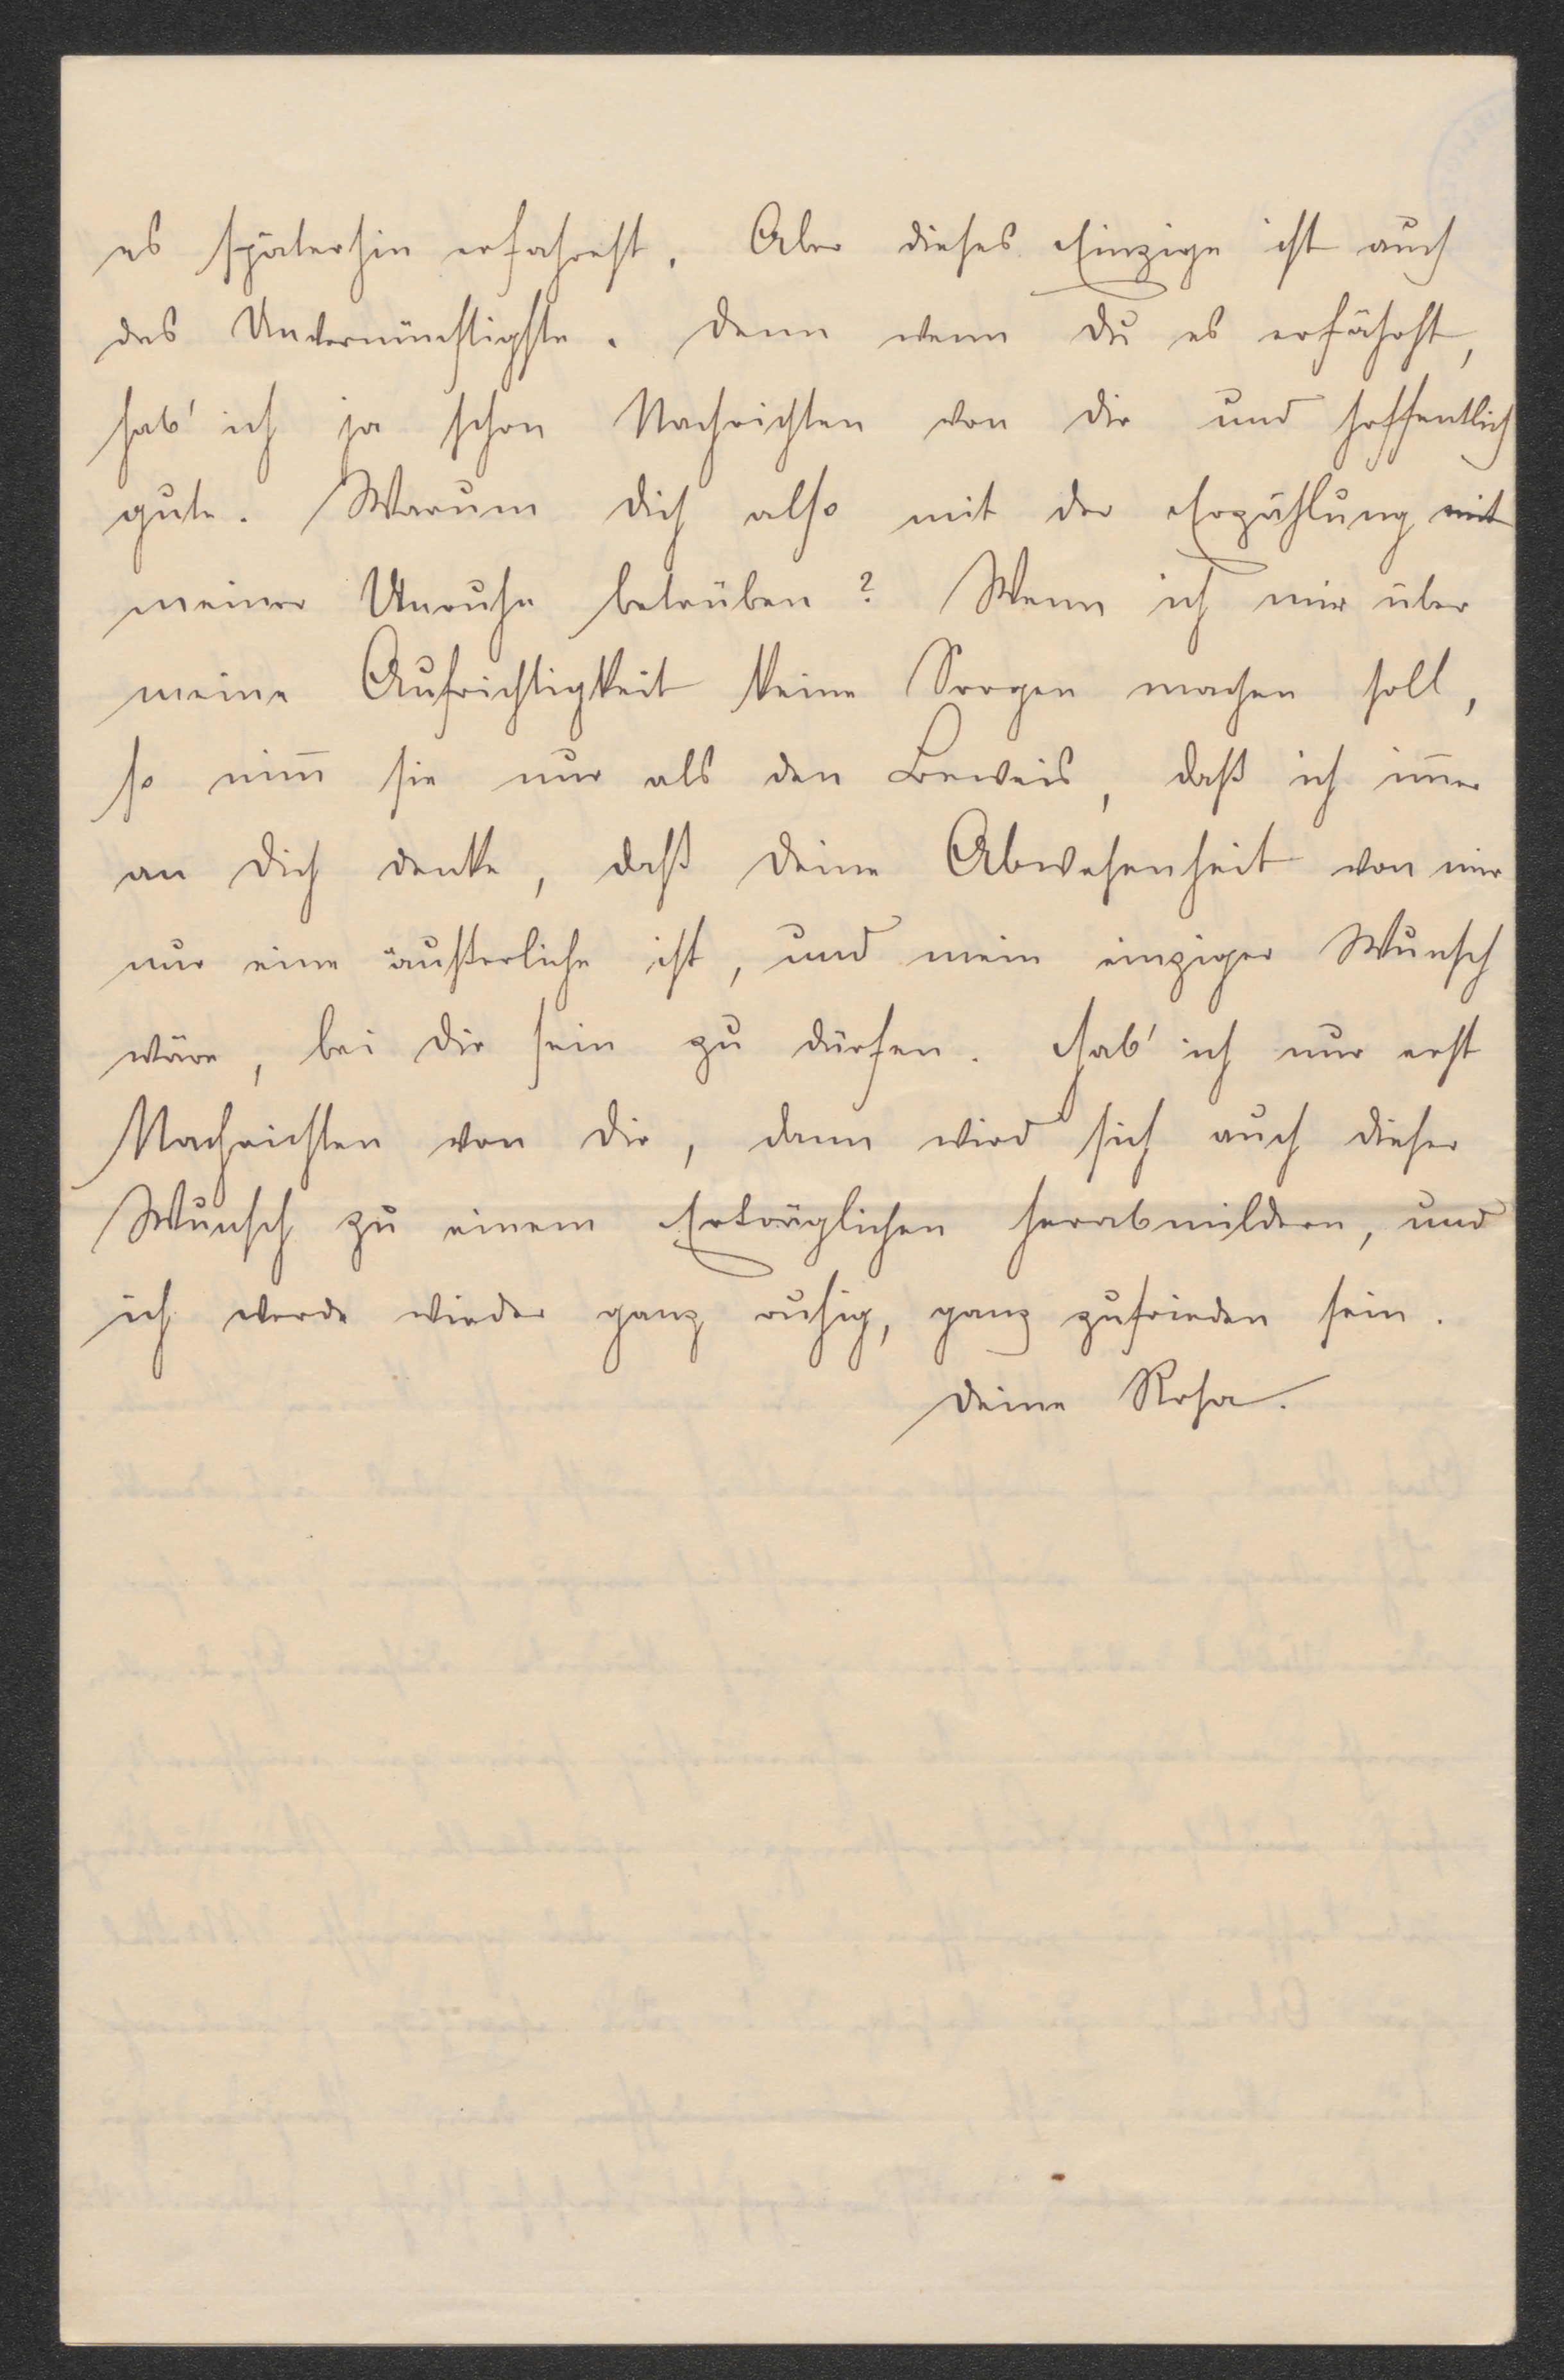 es späterhin erfahrest. Aber dieses Einzige ist auch
das Unvernünftigste. Denn wenn Du es erfährst,
hab' ich ja schon Nachrichten von Dir und hoffentlich
gute. Warum Dich also mit der Erzählung mit
meiner Unruhe betrüben? Wenn ich mir über
meine Aufrichtigkeit keine Sorgen machen soll,
so nim̅ sie nur als den Beweis, daß ich im̅er
an Dich denke, daß Deine Abwesenheit von mir
nur eine äußerliche ist, und mein einziger Wunsch
wäre, bei Dir sein zu dürfen. Hab' ich nur erst
Nachrichten von Dir, dann wird sich auch dieser
Wunsch zu einem Erträglichen herabmildern, und
ich werde wieder ganz ruhig, ganz zufrieden sein.
Deine Rosa.